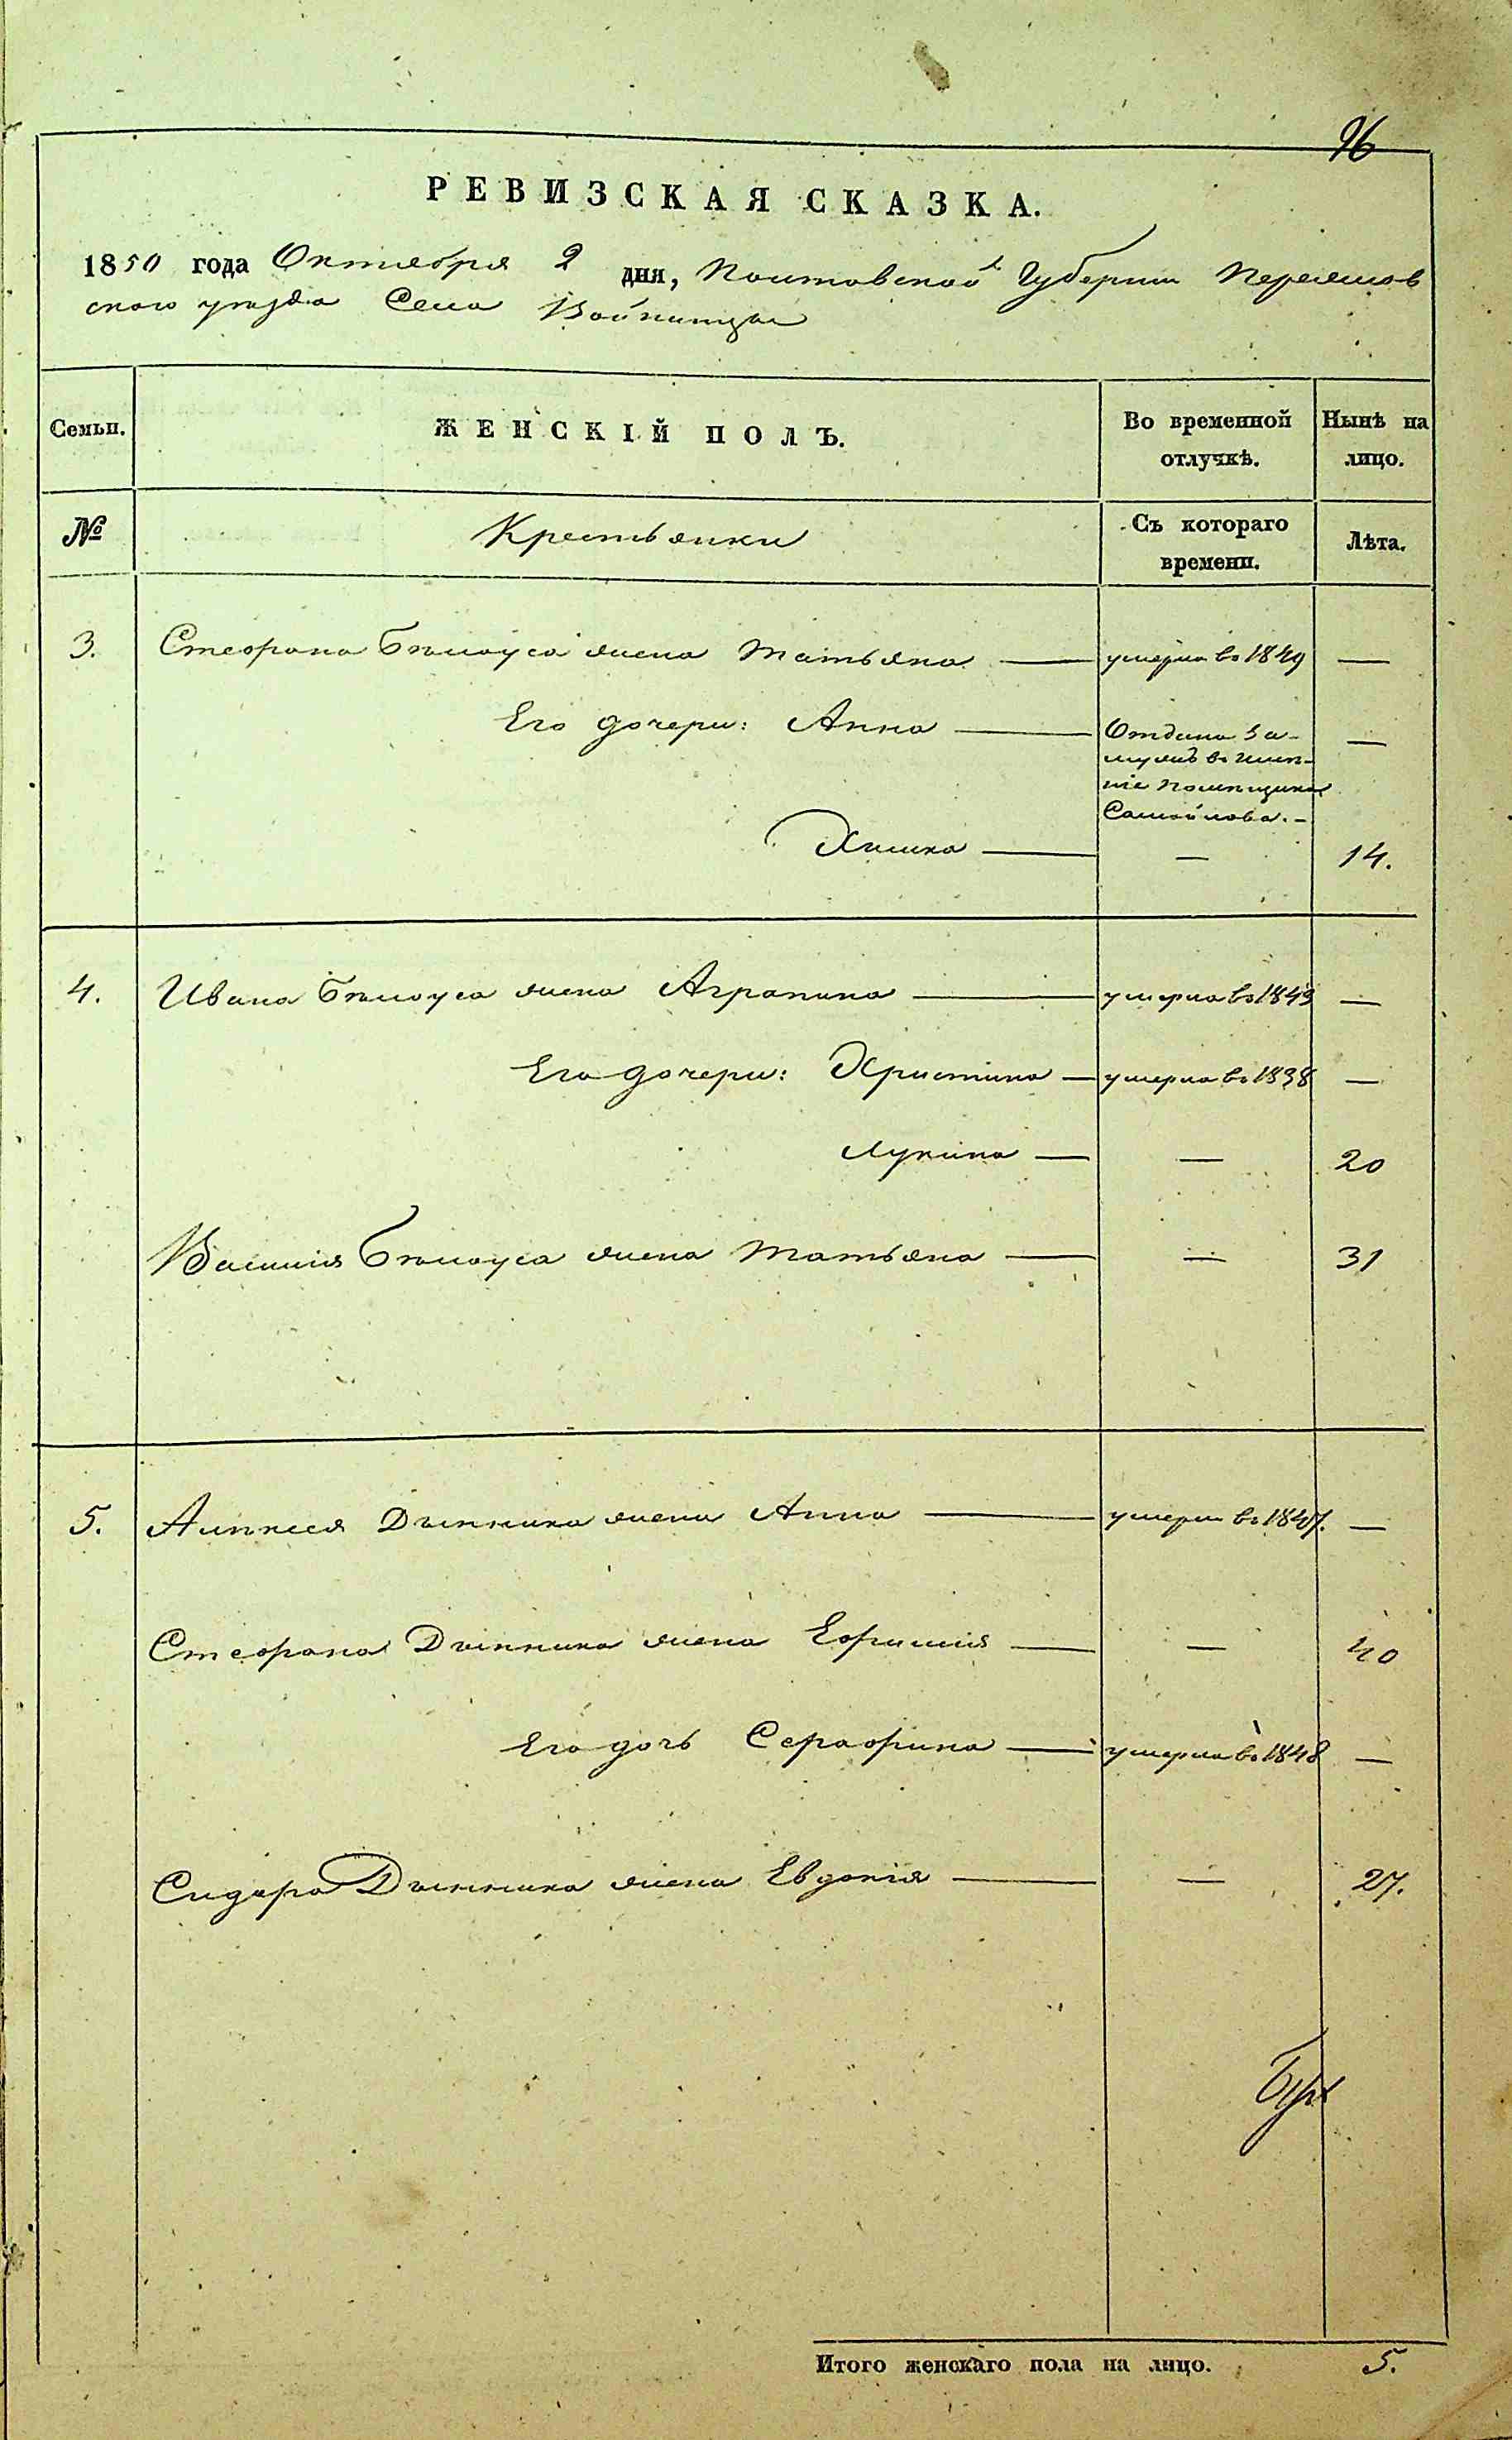 96
РЕВИЗСКАЯ СКАЗКА.
1850 года Октября 2 дня, Полтавской Губерніи Переяслов
ского уезда Села Войтовцы
Семьи. ЖЕНСКІЙ ПОЛЪ. Во временной отлучкѣ. Нынѣ на лицо.
№ Крестьянки Съ котораго времени. Лѣта.
3. Стефана Бѣлоуса жена Татьяна — умерла въ 1849 —
Его дочери: Анна — Отдана за-
мужъ въ имѣ-
ніе помѣщика
Самойлова. —
Химка — — 14.
4. Ивана Бѣлоуса жена Агрипина — умерла въ 1849 —
Его дочери: Христина — умерла въ 1838 —
Лукина — — 20
Василія Бѣлоуса жена Татьяна — — 31
5. Алексея Дынника жена Анна — умерла въ 1847. —
Стефана Дынника жена Ефимія — — 40
Его дочь Серафина — умерла въ 1848 —
Сидора Дынника жена Евдокія — — 27.
Итого женскаго пола на лицо. 5.